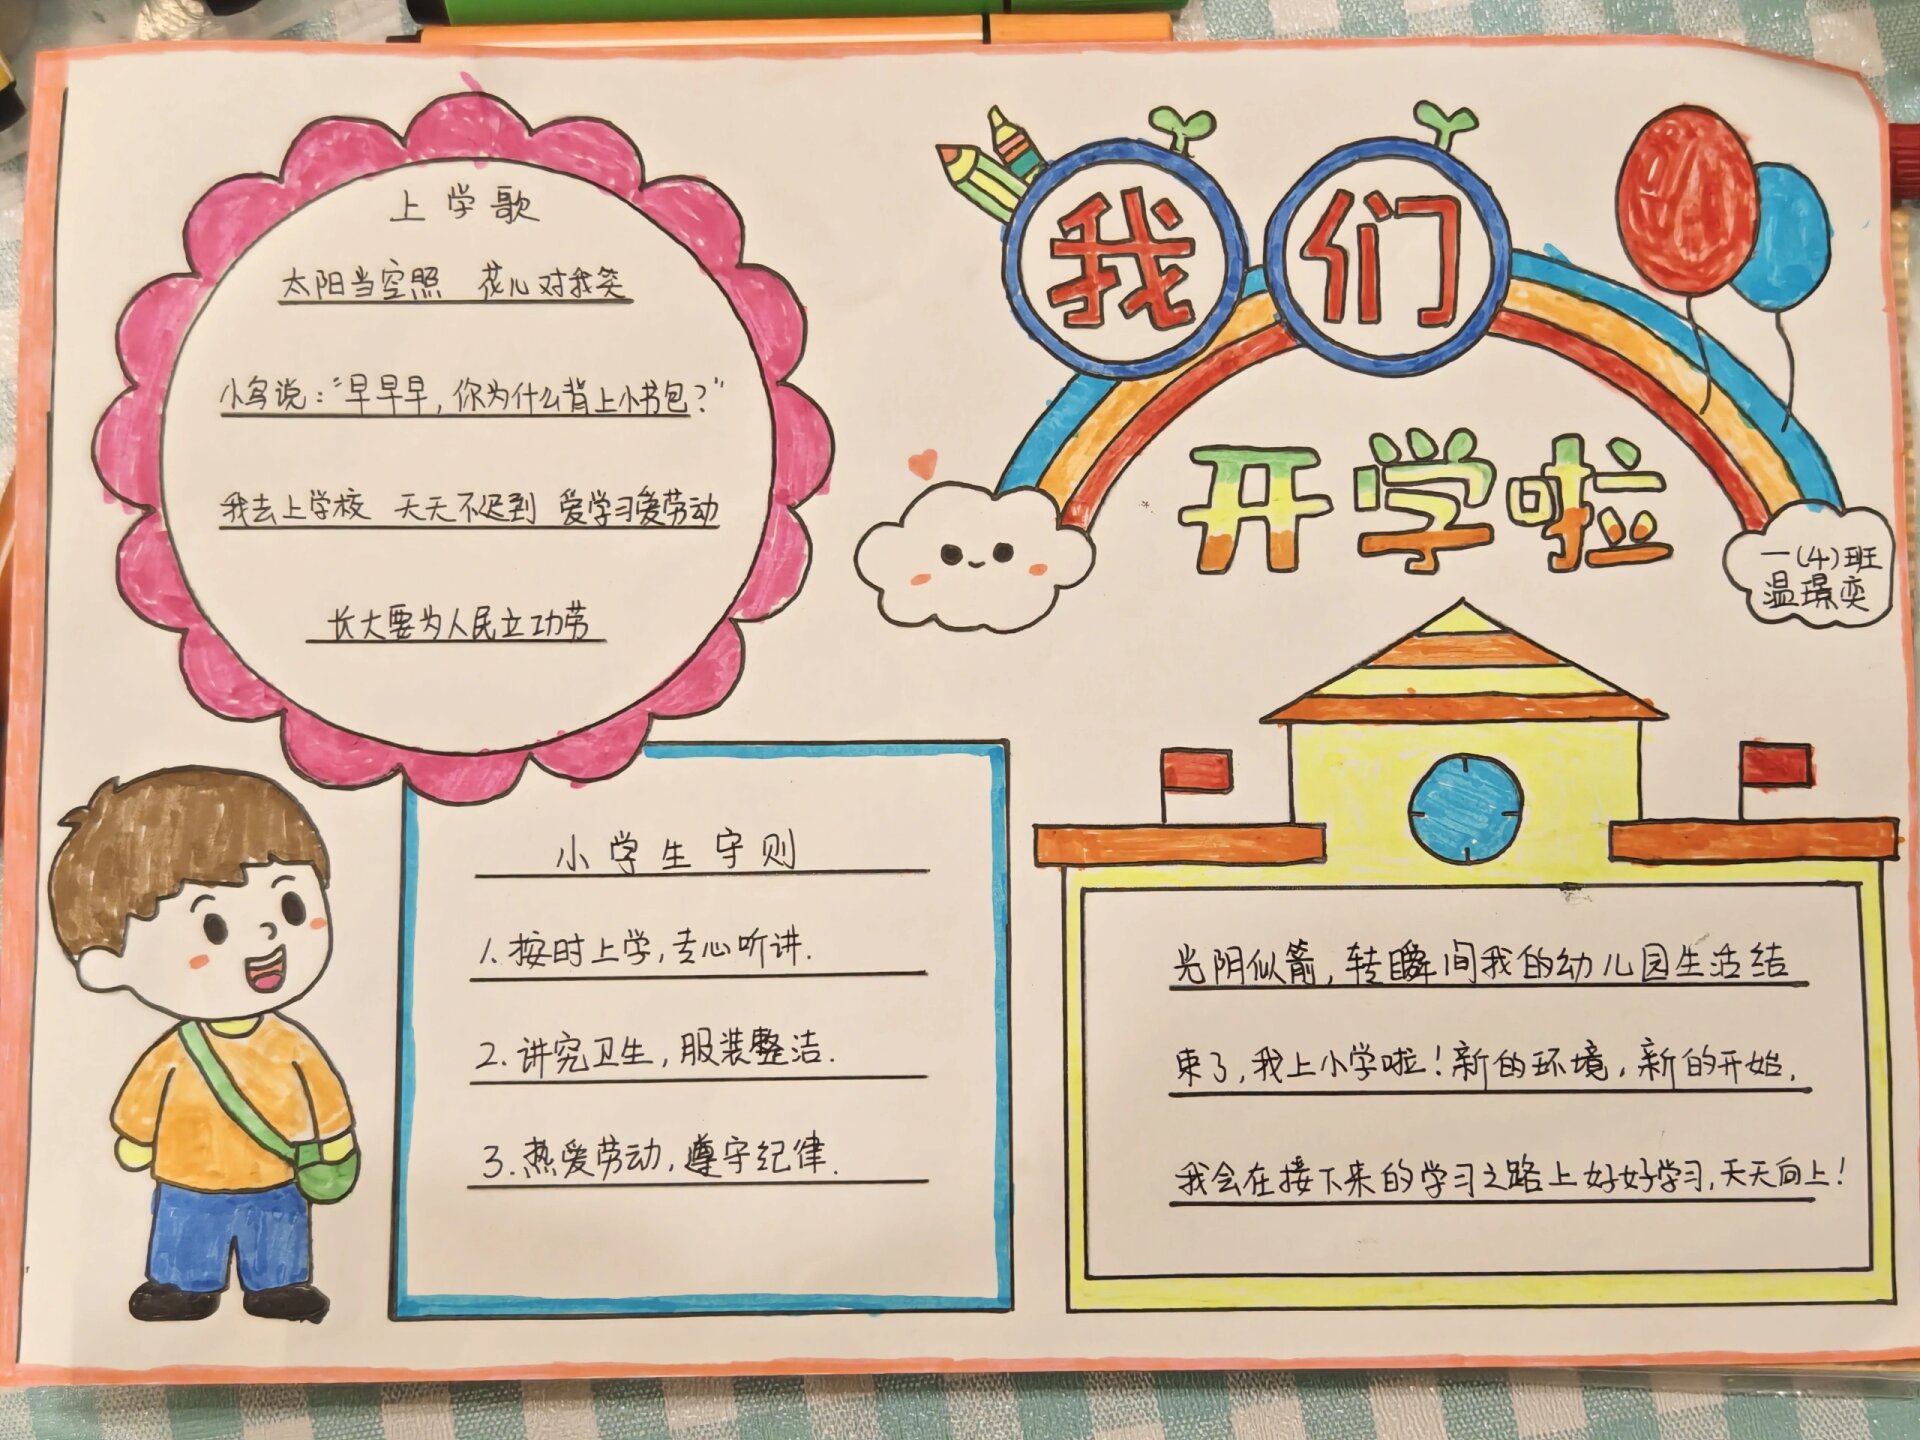 上学歌
太阳当空照 花儿对我笑
小鸟说："早早早，你为什么背上小书包？"
我去上学校 天天不迟到 爱学习爱劳动
长大要为人民立功劳
我们
开学啦
一(4)班
温璟奕
小学生守则
1.按时上学,专心听讲.
2.讲究卫生,服装整洁.
3.热爱劳动,遵守纪律.
光阴似箭,转瞬间我的幼儿园生活结
束了,我上小学啦!新的环境,新的开始,
我会在接下来的学习之路上好好学习,天天向上!